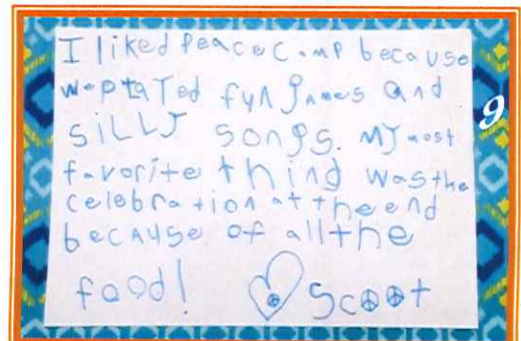 I liked Peace Camp because
we played fun games and
SiLLY songs. My most
favorite thing was the
celebration at the end
because of all the
food! Scoot
9